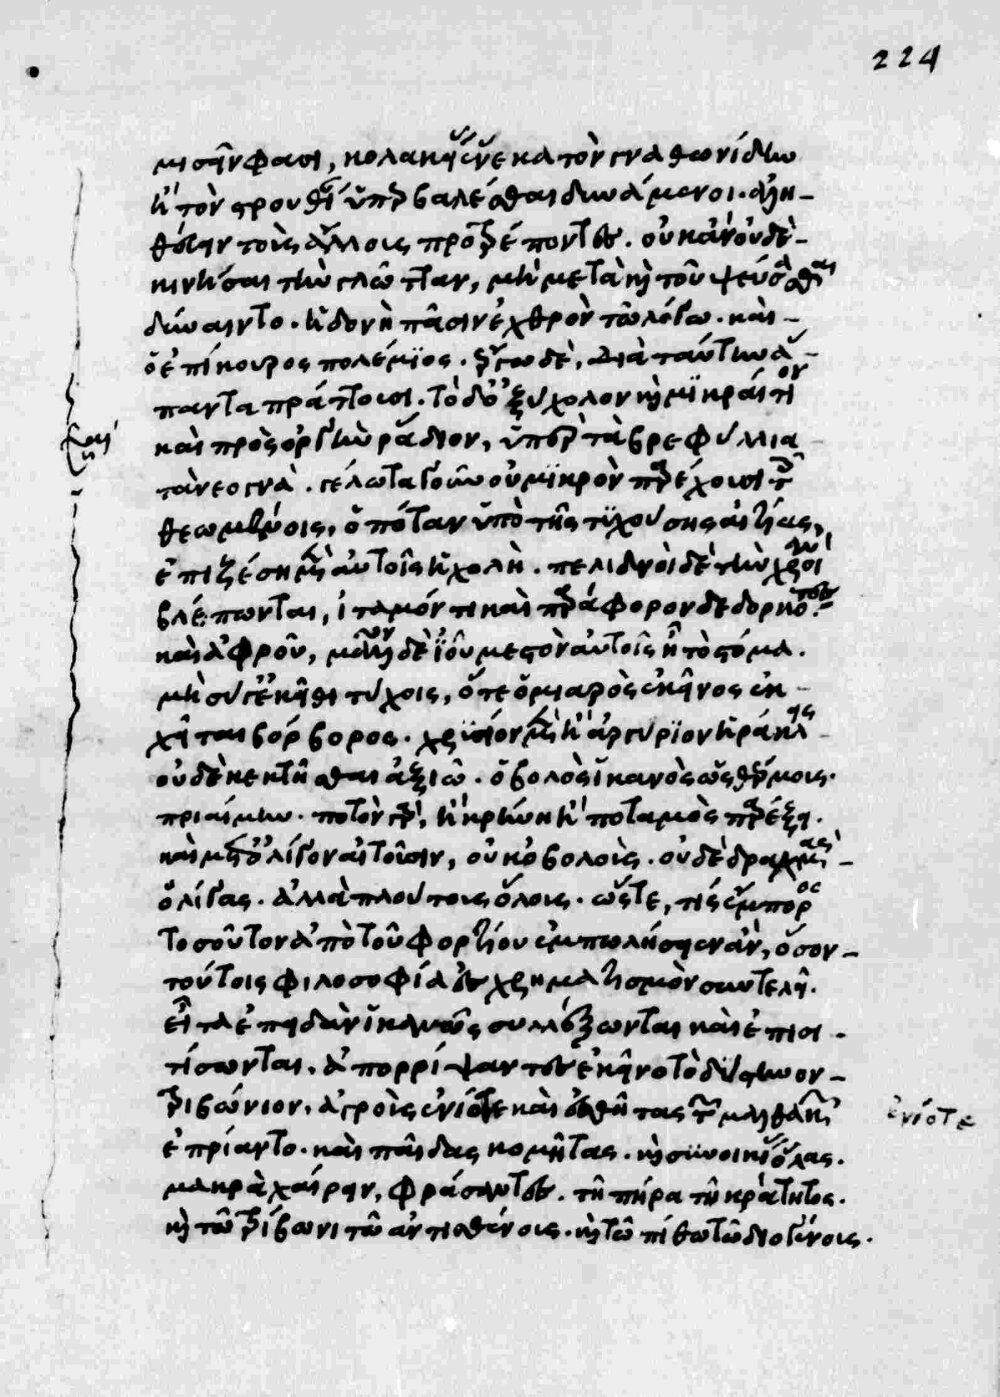 224
μισεῖν φασι, κολακείας ἕνεκα τὸν γναθωνίδην
ἢ τὸν στρουθίαν ὑπερβαλέσθαι δυνάμενοι. ἀλη-
θεύειν τοῖς ἄλλοις προτρέποντες. οὐκ ἂν οὐδὲ
κινῆσαι τὴν γλῶτταν, μὴ μετὰ καὶ τοῦ ψεύσασθαι
δύναιντο. ἡδονὴ πᾶσιν ἐχθρὸν τῶ λόγω. καὶ
ὁ ἐπίκουρος πολέμϊος. ἔργω δὲ, διὰ ταύτην ἅ-
παντα πράττουσι. τὸ δ' ὀξύχολον καὶ μϊκραίτιον
καὶ πρὸς ὀργὴν ῥάδιον, ὑπὲρ τὰ βρεφύλλια
τὰ νεογνά. γέλωτα γοῦν οὐ μϊκρὸν παρέχουσι τοῖς
θεωμένοις, ὁπόταν ὑπὸ τῆς τϋχούσης αἰτίας,
ἐπιζέση μὲν αὐτοῖς ἡ χολή. πελιδνοὶ δὲ τὴν χρόαν
βλέπωνται, ἰταμόν τι καὶ παράφορον δεδορκότες.
καὶ ἀφροῦ, μᾶλλον δὲ ἰοῦ μεστὸν αὐτοῖς ἦ τὸ στόμα.
μὴ σύ γε ἐκεῖθι τύχοις, ὅτε ὁ μιαρὸς ἐκεῖνος ἐκ-
χεῖται βόρβορος. χρϋσίον μὲν ἢ ἀργύρϊον ἡράκλεις
οὐδὲ κεκτῆσθαι ἀξιῶ. ὀβολὸς ἱκανὸς ὡς θέρμους
πριαίμην. ποτὸν γὰρ, ἢ κρήνη ἢ ποταμὸς παρέξει.
καὶ μετ' ὀλίγον αἰτοῦσιν, οὐκ ὀβολοὺς. οὐδὲ δραχμὰς
ὀλίγας. ἀλλὰ πλούτους ὅλους. ὥστε, τίς ἔμπορος
τοσοῦτον ἀπὸ τοῦ φορτίου ἐμπολήσειεν ἂν, ὅσον
τούτοις φιλοσοφία ἐς χρηματισμὸν συντελεῖ.
εἶτα ἐπειδὰν ἱκανῶς συλλέξωνται καὶ ἐπισι-
τίσωνται, ἀπορρίψαντες ἐκεῖνο τὸ δύστηνον
τριβώνιον, ἀγροὺς ἐνίοτε καὶ ἐσθῆτας τῶν μαλθακῶν
ἐνίοτε
ἐπρίαντο. καὶ παῖδας κομήτας. καὶ σϋνοικίας ὅλας.
μακρὰ χαίρειν, φράσαντες. τῆ πήρα τῆ κράτητος.
καὶ τῶ τρίβωνι τῶ ἀντισθένους. καὶ τῶ πίθω τῶ διογένους.